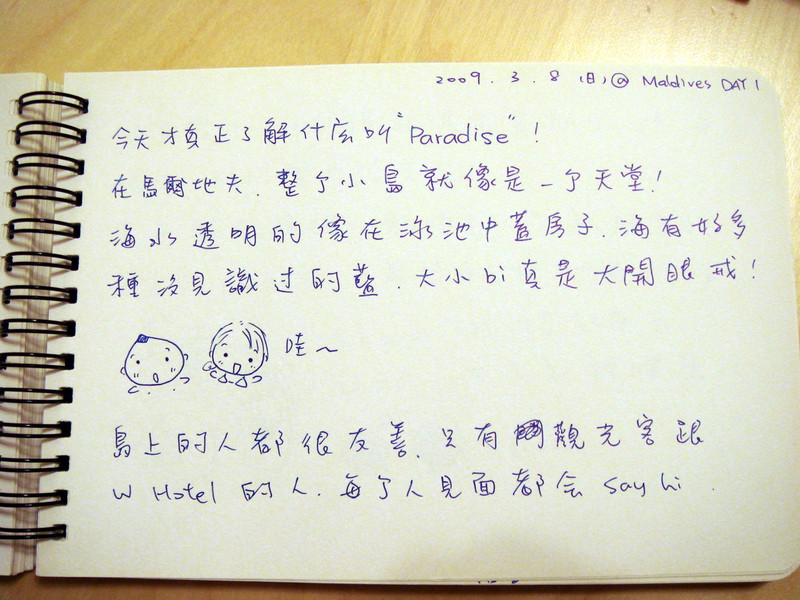 2009. 3. 8 (日) @ Maldives DAY 1
今天才真正了解什庅叫"Paradise"!
在馬爾地夫.整个小島就像是一个天堂!
海水透明的像在泳池中蓋房子.海有好多
種沒見識过的藍.大小bi真是大開眼戒!
哇~
島上的人都很友善.只有觀光客跟
W Hotel 的人.每个人見面都会 say hi.